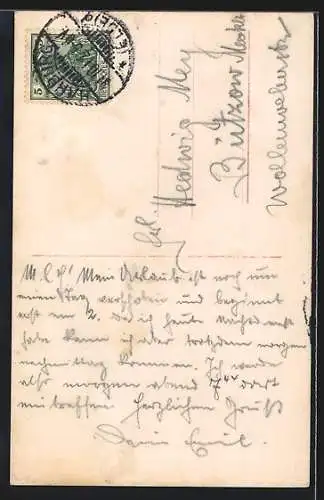 Frl. Hedwig Mey
Bützow Meckl.
Wollenweberstr.
M. l. H! Mein Urlaub ist noch um
einen Tag verschoben und beginnt
erst am 2. da ich heute Nachtdienst
habe kann ich aber trotzdem morgen
nachmittag kommen. Ich werde
also morgen abend 7⁴⁴ dort
eintreffen. Herzlichen Gruß
Dein Emil.
5